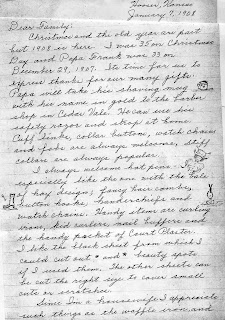 Homer, Kansas
January 7, 1908
Dear Family:
Christmas and the old year are past
but 1908 is here. I was 25 on Christmas
Day and Papa Frank was 33 on
December 29, 1907. Its time for us to
express thanks for our many gifts.
Papa will take his shaving mug
with his name in gold to the barber
shop in Cedar Vale. He can use his
safety razor and strop at home.
Cuff links, collar buttons, watch chains
and fobs are always welcome, stiff
collars are always popular.
I always welcome hat pins, I
especially like the one with the bale
of hay design; fancy hair combs,
button hooks, handkerchiefs and
watch chains. Handy items are curling
irons, kid curlers, nail buffers and
the handy packet of Court Plaster.
I like the black sheet from which I
could cut out * and * beauty spots
if I used them. The other sheets can
be cut the right size to cover small
cuts or scratches.
Since I'm a housewife I appreciate
such things as the waffle iron, and